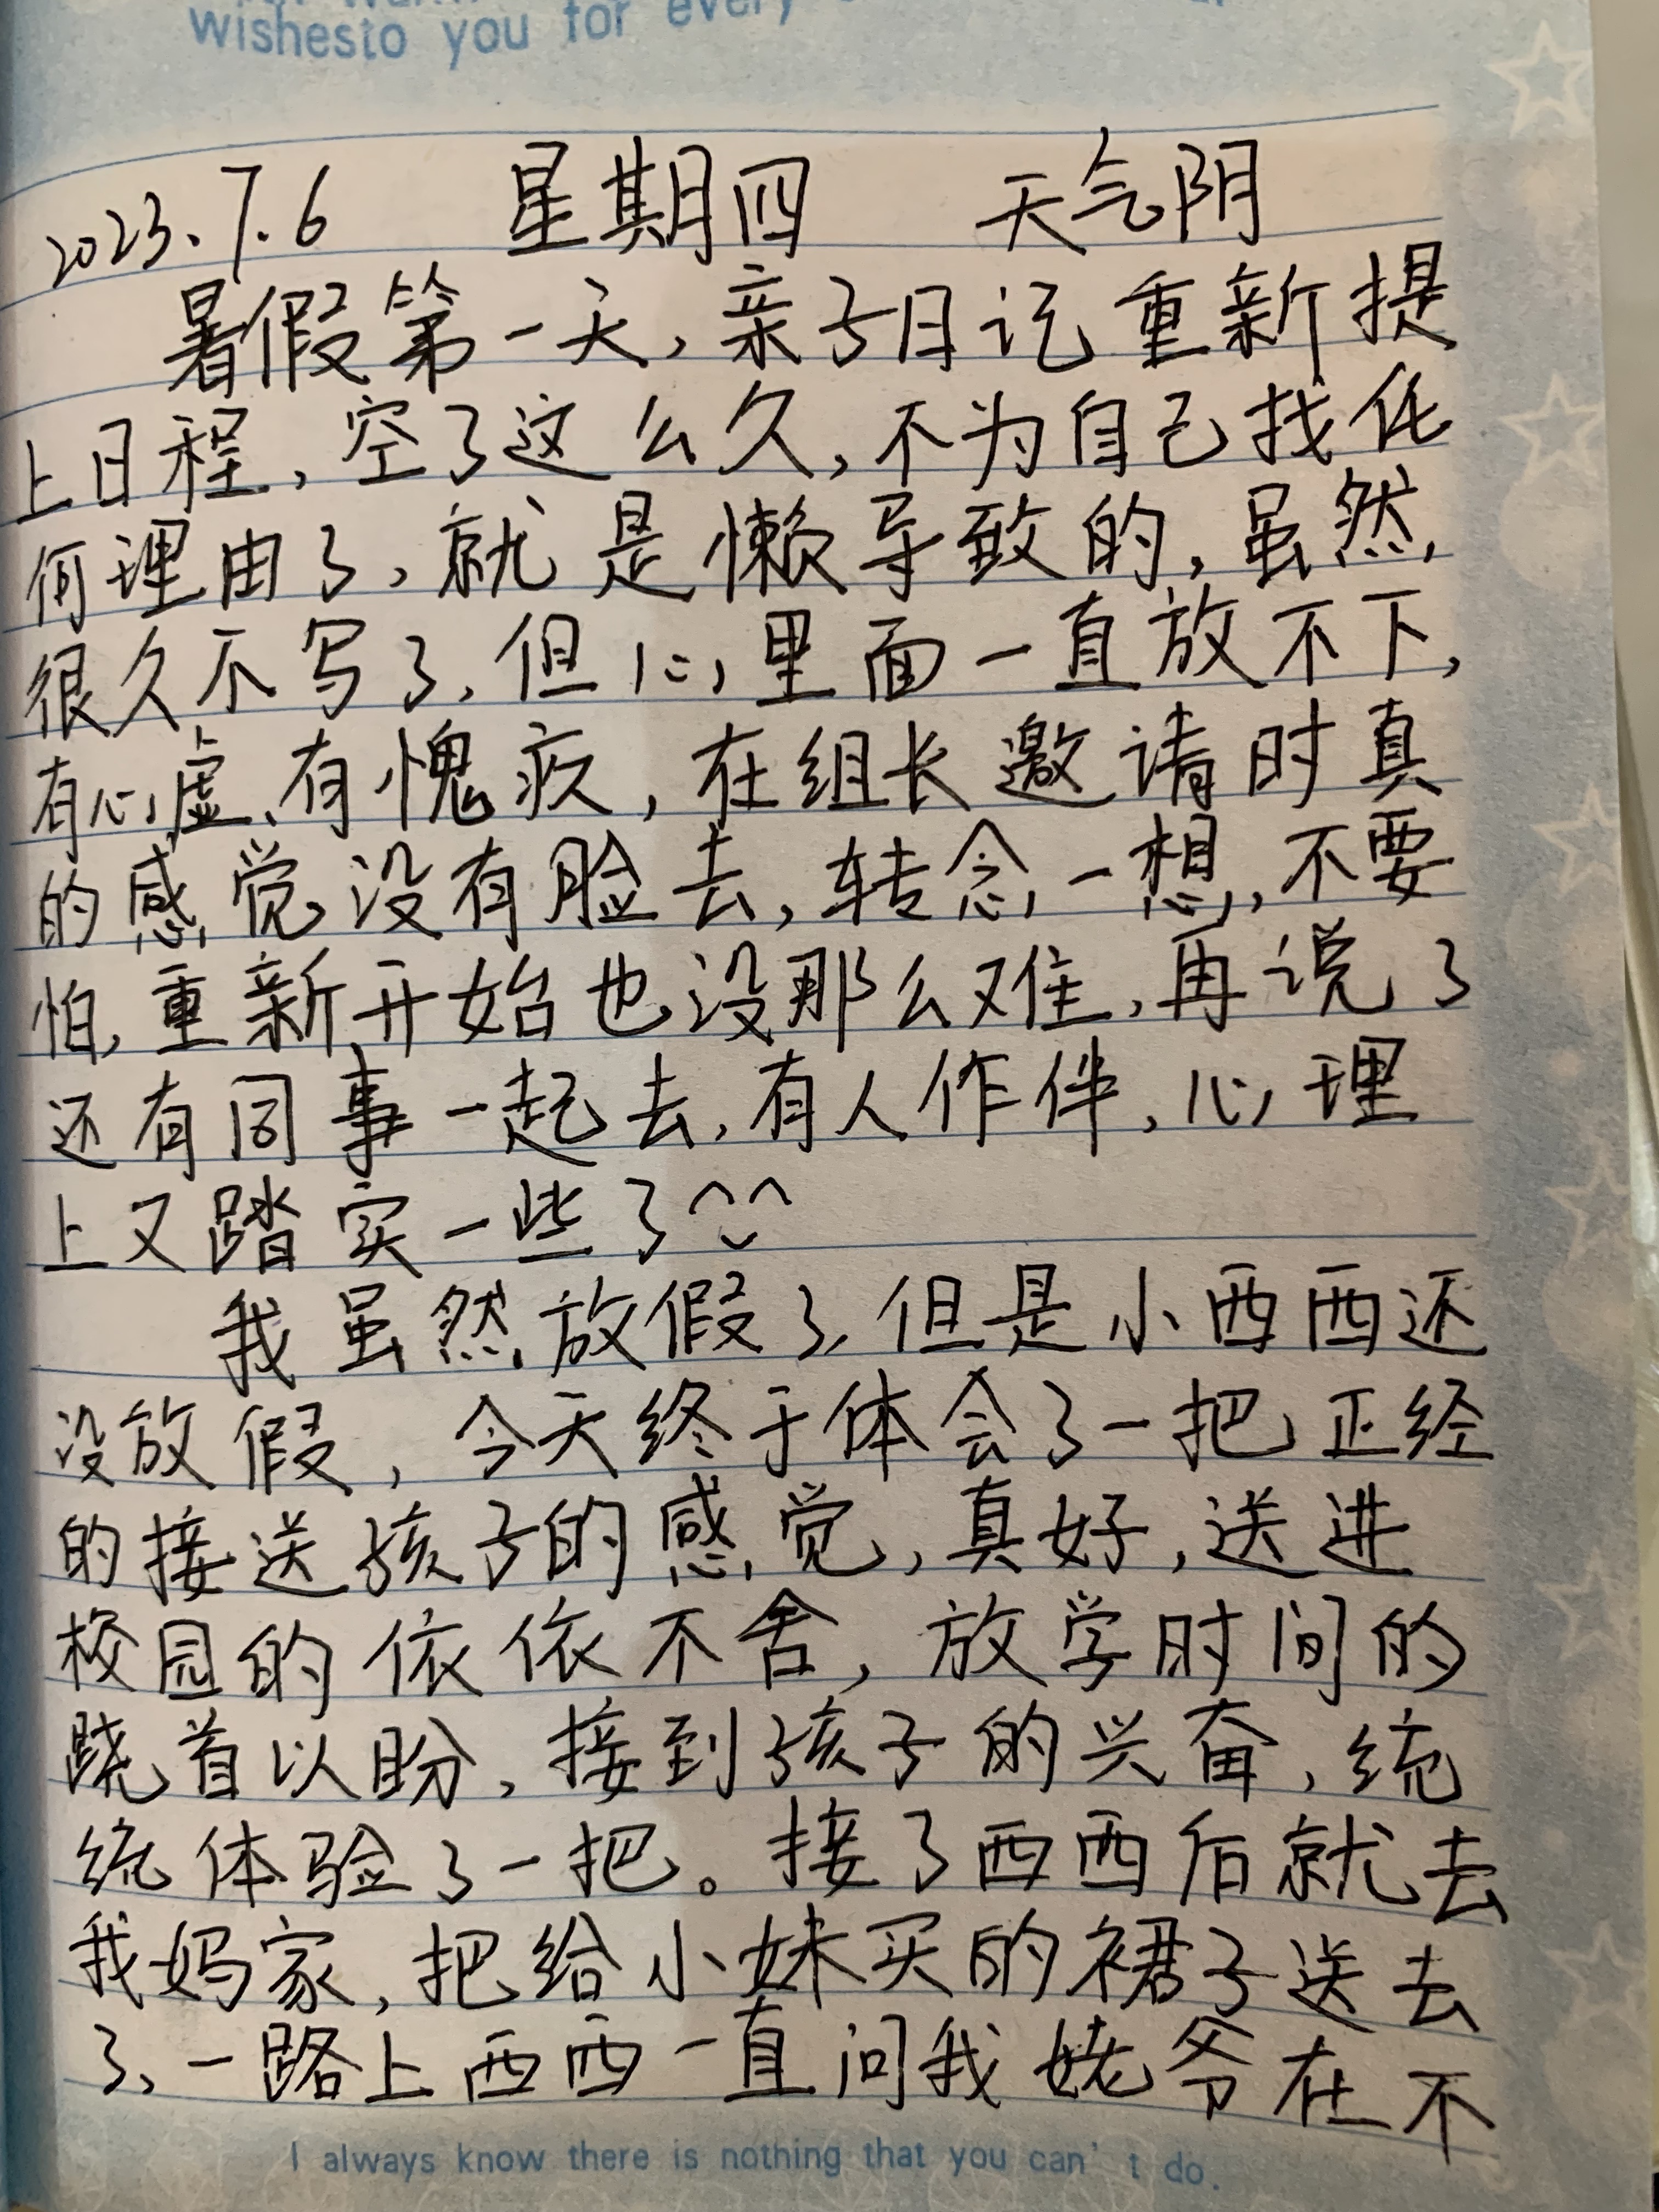 wishesto you for every
2023.7.6 星期四 天气阴
暑假第一天,亲子日记重新提
上日程,空了这么久,不为自己找任
何理由了,就是懒导致的,虽然
很久不写了,但心里面一直放不下,
有心虚、有愧疚,在组长邀请时真
的感觉没有脸去,转念一想,不要
怕,重新开始也没那么难,再说了
还有同事一起去,有人作伴,心理
上又踏实一些了^‿^
我虽然放假了,但是小西西还
没放假,今天终于体会了一把正经
的接送孩子的感觉,真好,送进
校园的依依不舍,放学时间的
跷首以盼,接到孩子的兴奋,统
统体验了一把。接了西西后就去
我妈家,把给小妹买的裙子送去
了、一路上西西一直问我姥爷在不
I always know there is nothing that you can't do.